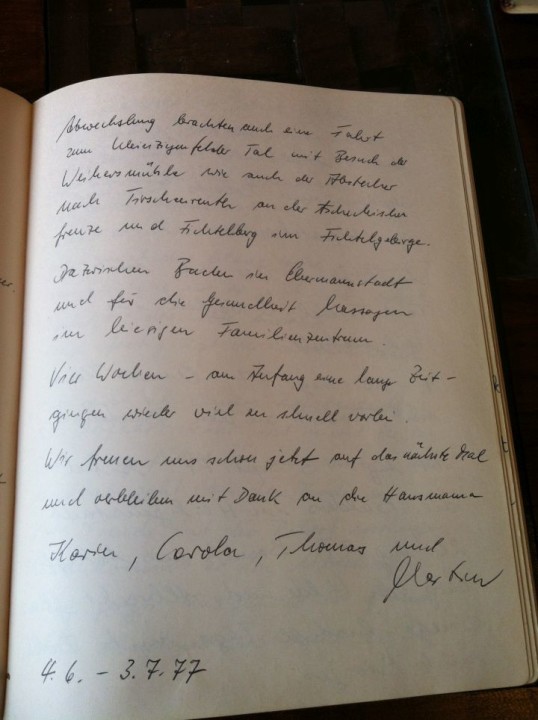 Abwechslung brachten auch eine Fahrt
zum Kleinziegenfelder Tal mit Besuch der
Weihersmühle wie auch der Abstecher
nach Tirschenreuth an der Tschechischen
Grenze und Fichtelberg im Fichtelgebirge.
Dazwischen Baden in Ebermannstadt
und für die Gesundheit Massagen
im hiesigen Familienzentrum.
Vier Wochen – am Anfang eine lange Zeit –
gingen wieder viel zu schnell vorbei.
Wir freuen uns schon jetzt auf das nächste Mal
und verbleiben mit Dank an die Hausmama
Karin, Carola, Thomas und
4.6. – 3.7.77